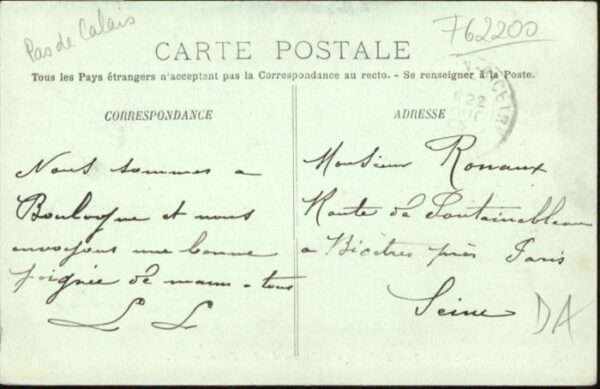 Pas de Calais
F62200
CARTE POSTALE
Tous les Pays étrangers n'acceptent pas la Correspondance au recto. - Se renseigner à la Poste.
CORRESPONDANCE
Nous sommes a
Boulogne et nous
envoyons une bonne
poignée de mains a tous
L L
ADRESSE
22
Monsieur Ronaux
Route de Fontainebleau
a Bicêtres près Paris
Seine
DA